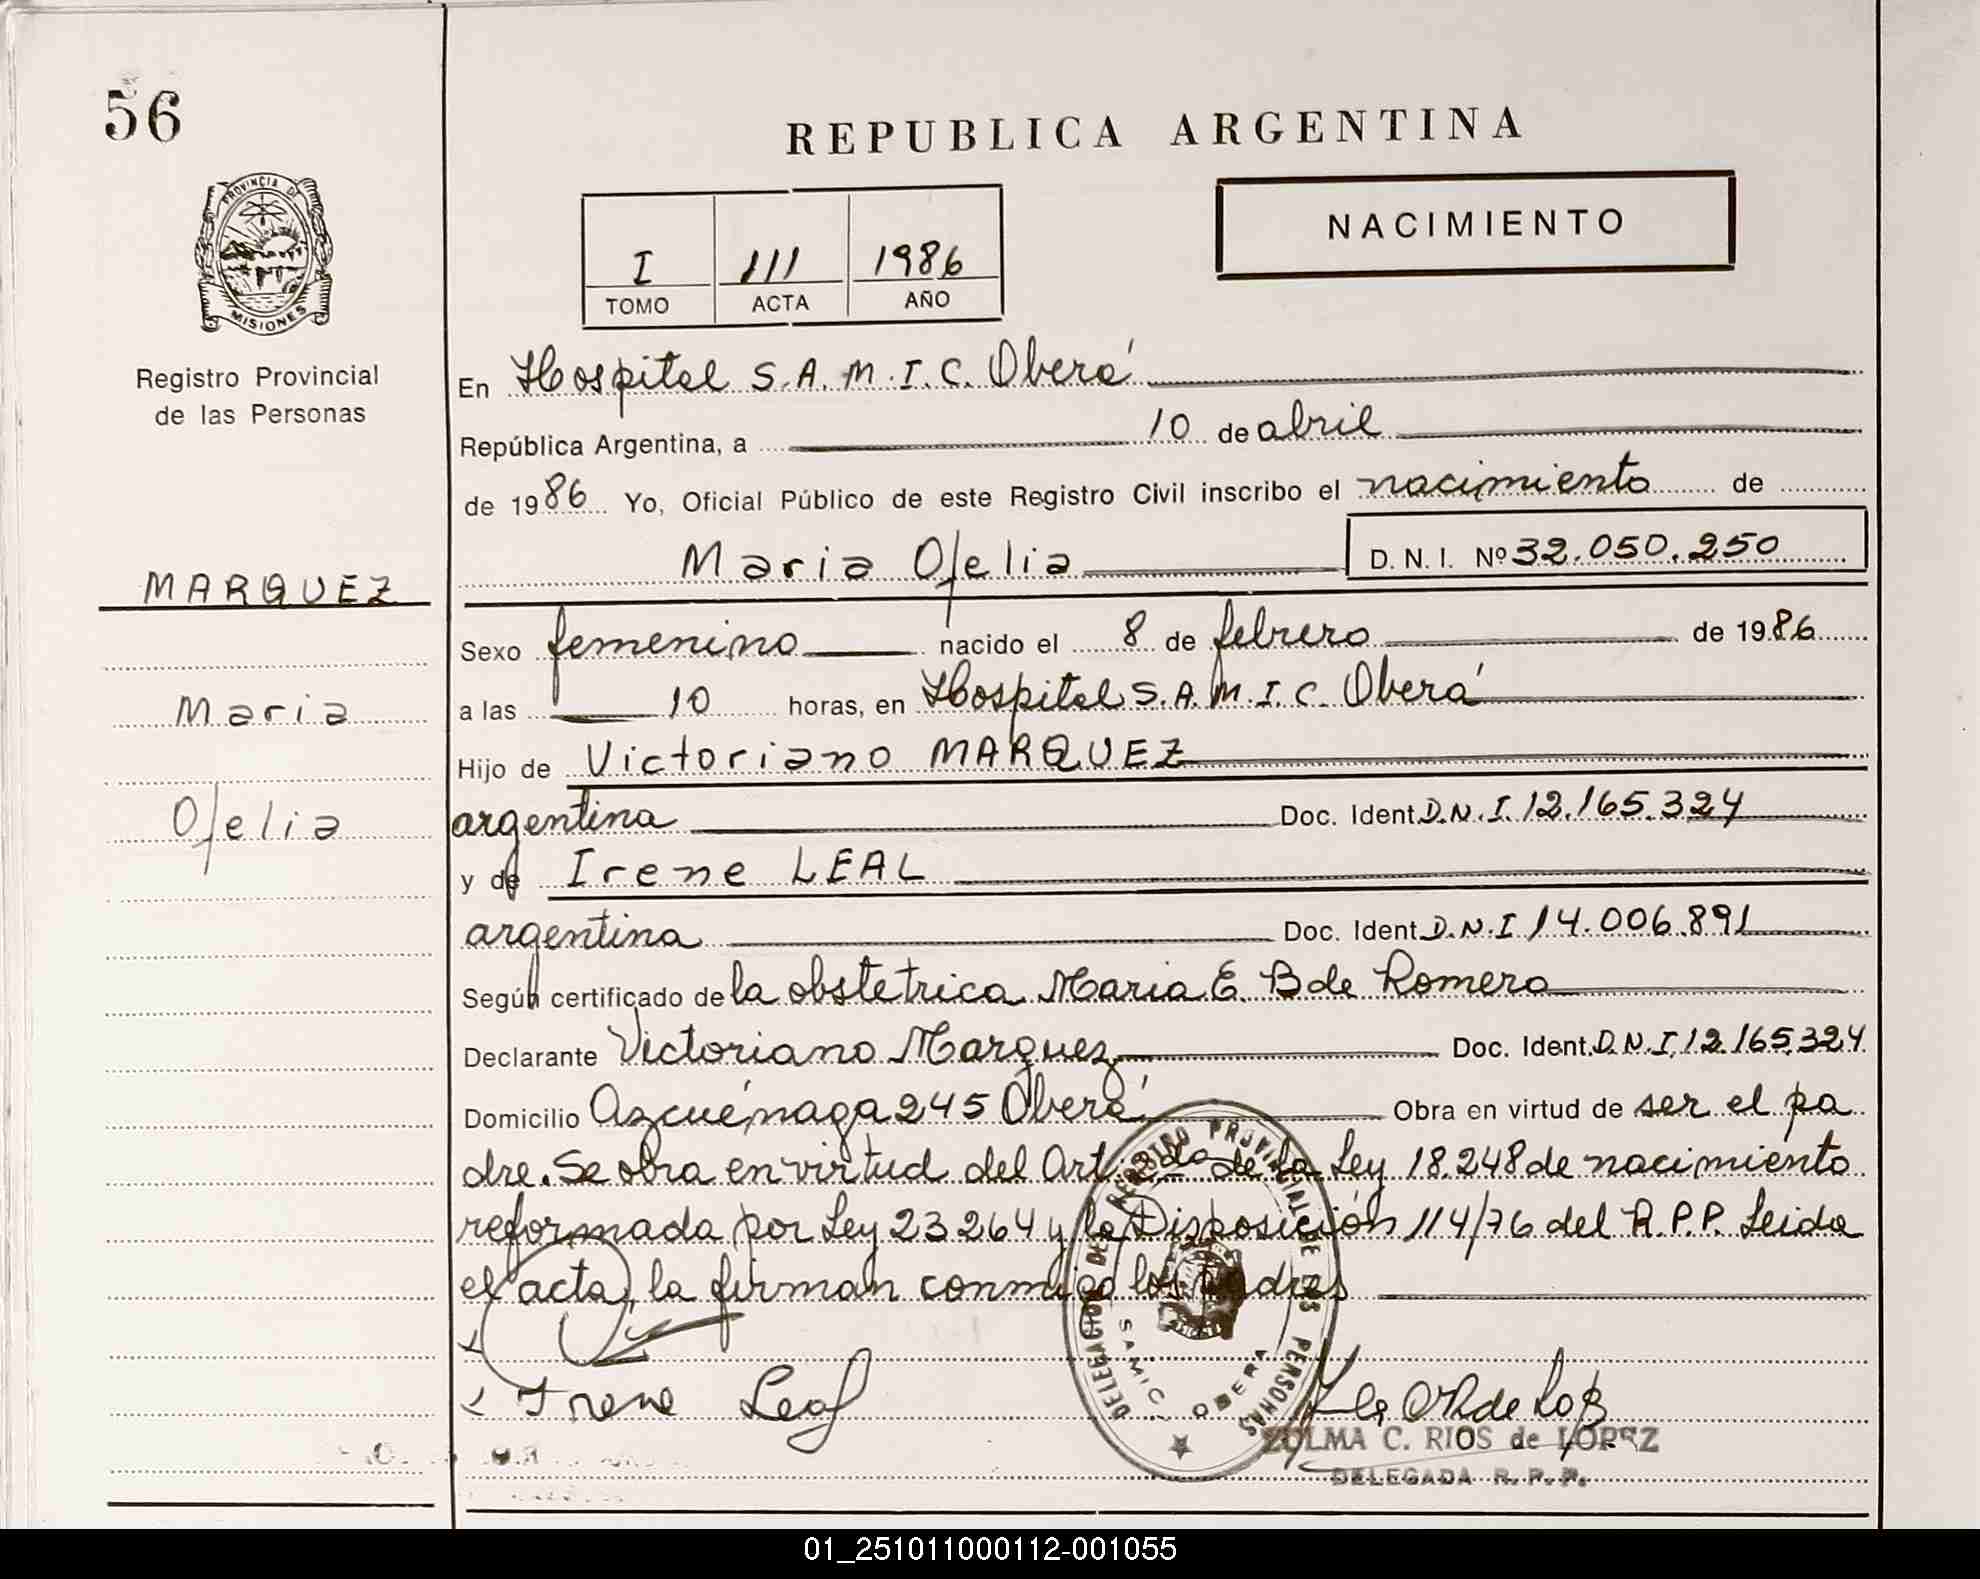 56
REPUBLICA ARGENTINA
PROVINCIA DE
MISIONES
I 111 1986
TOMO ACTA AÑO
NACIMIENTO
Registro Provincial
de las Personas
En Hospital S.A.M.I.C. Oberá
República Argentina, a 10 de abril
de 1986 Yo, Oficial Público de este Registro Civil inscribo el nacimiento de
Maria Ofelia D. N. I. Nº 32.050.250
MARQUEZ
Sexo femenino nacido el 8 de febrero de 1986
Maria
a las 10 horas, en Hospital S.A.M.I.C. Oberá
Hijo de Victoriano MARQUEZ
Ofelia
argentina Doc. Ident. D.N.I. 12.165.324
y de Irene LEAL
argentina Doc. Ident. D.N.I 14.006.891
Según certificado de la obstetrica Maria E. B de Romero
Declarante Victoriano Marquez Doc. Ident. D.N.I. 12.165.324
Domicilio Azcuénaga 245 Oberá Obra en virtud de ser el pa
dre. Se obra en virtud del Art. 2do de la Ley 18.248 de nacimiento
reformada por Ley 23264 y la Disposición 114/76 del R.P.P. Leida
el acta, la firman conmigo los padres
Irene Leal
DELEGACION DEL REGISTRO PROVINCIAL DE LAS PERSONAS
SAMIC. OBERA
ZULMA C. RIOS de LOPEZ
DELEGADA R. P. P.
01_251011000112-001055